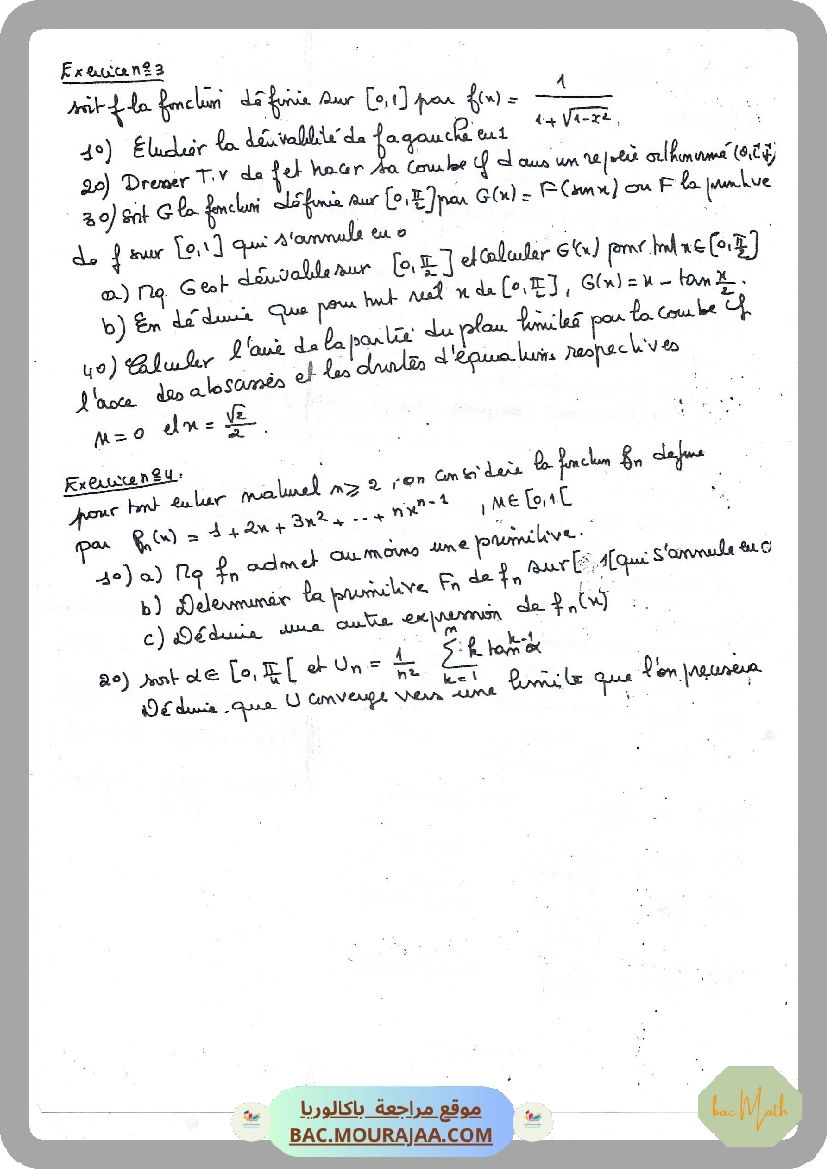 Exercice n° 3
soit f la fonction définie sur [0,1] par f(x) = 1 / (1+√(1-x²))
1°) Etudier la dérivabilité de f a gauche en 1
2°) Dresser T.V de f et tracer sa courbe Cf dans un repère orthonormé (0,i,j)
3°) Soit G la fonction définie sur [0,π/2] par G(x) = F(sinx) ou F la primitive
de f sur [0,1] qui s'annule en 0
a) Mq G est dérivable sur [0,π/2] et calculer G'(x) pour tout x∈[0,π/2]
b) En déduire que pour tout réel x de [0,π/2], G(x) = x - tan x/2.
4°) Calculer l'aire de la partie du plan limitée par la courbe Cf
l'axe des abscisses et les droites d'équations respectives
x = 0 et x = √2/2.
Exercice n° 4.
pour tout entier naturel n ⩾ 2, on considère la fonction fn définie
par fn(x) = 1 + 2x + 3x² + ... + nx^(n-1), x∈[0,1[
1°) a) Mq fn admet au moins une primitive.
b) Déterminer la primitive Fn de fn sur [0,1[ qui s'annule en 0
c) Déduire une autre expression de fn(x)
2°) soit α∈[0,π/4[ et Un = 1/n² Σ_(k=1)^n k tan^(k-1) α
Déduire que U converge vers une limite que l'on precisera
موقع مراجعة باكالوريا
BAC.MOURAJAA.COM
bac Math